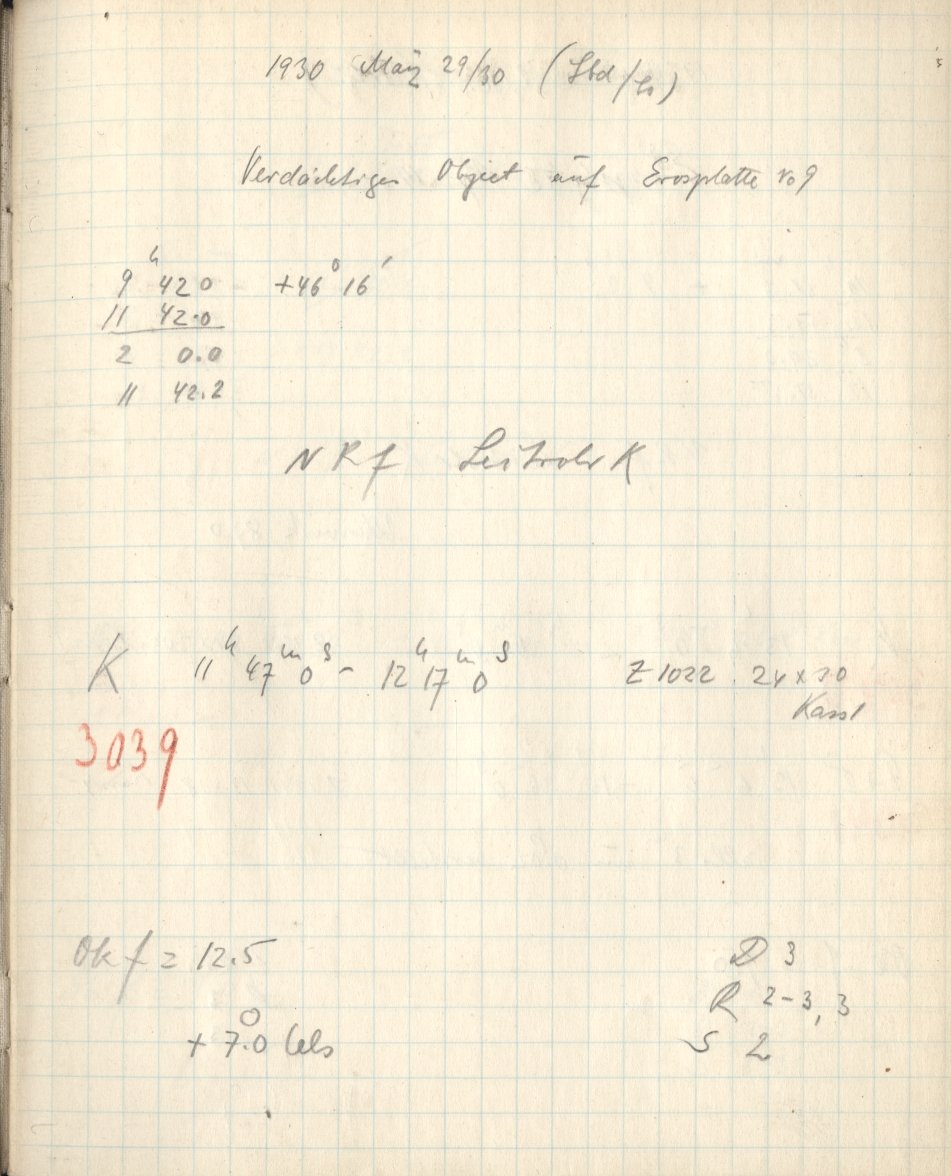 1930 März 29/30 (Sbd/
Verdächtiges Object auf Erosplatte No 9
9ʰ 42 0 +46° 16′
11 42.0
2 0.0
11 42.2
N R f Leitrohr K
K 11ʰ 47ᵐ 0ˢ - 12ʰ 17ᵐ 0ˢ Z 1022 . 24 x 30
Kass1
3039
Ok f = 12.5 D 3
R 2-3, 3
+ 7.0° Cels S 2